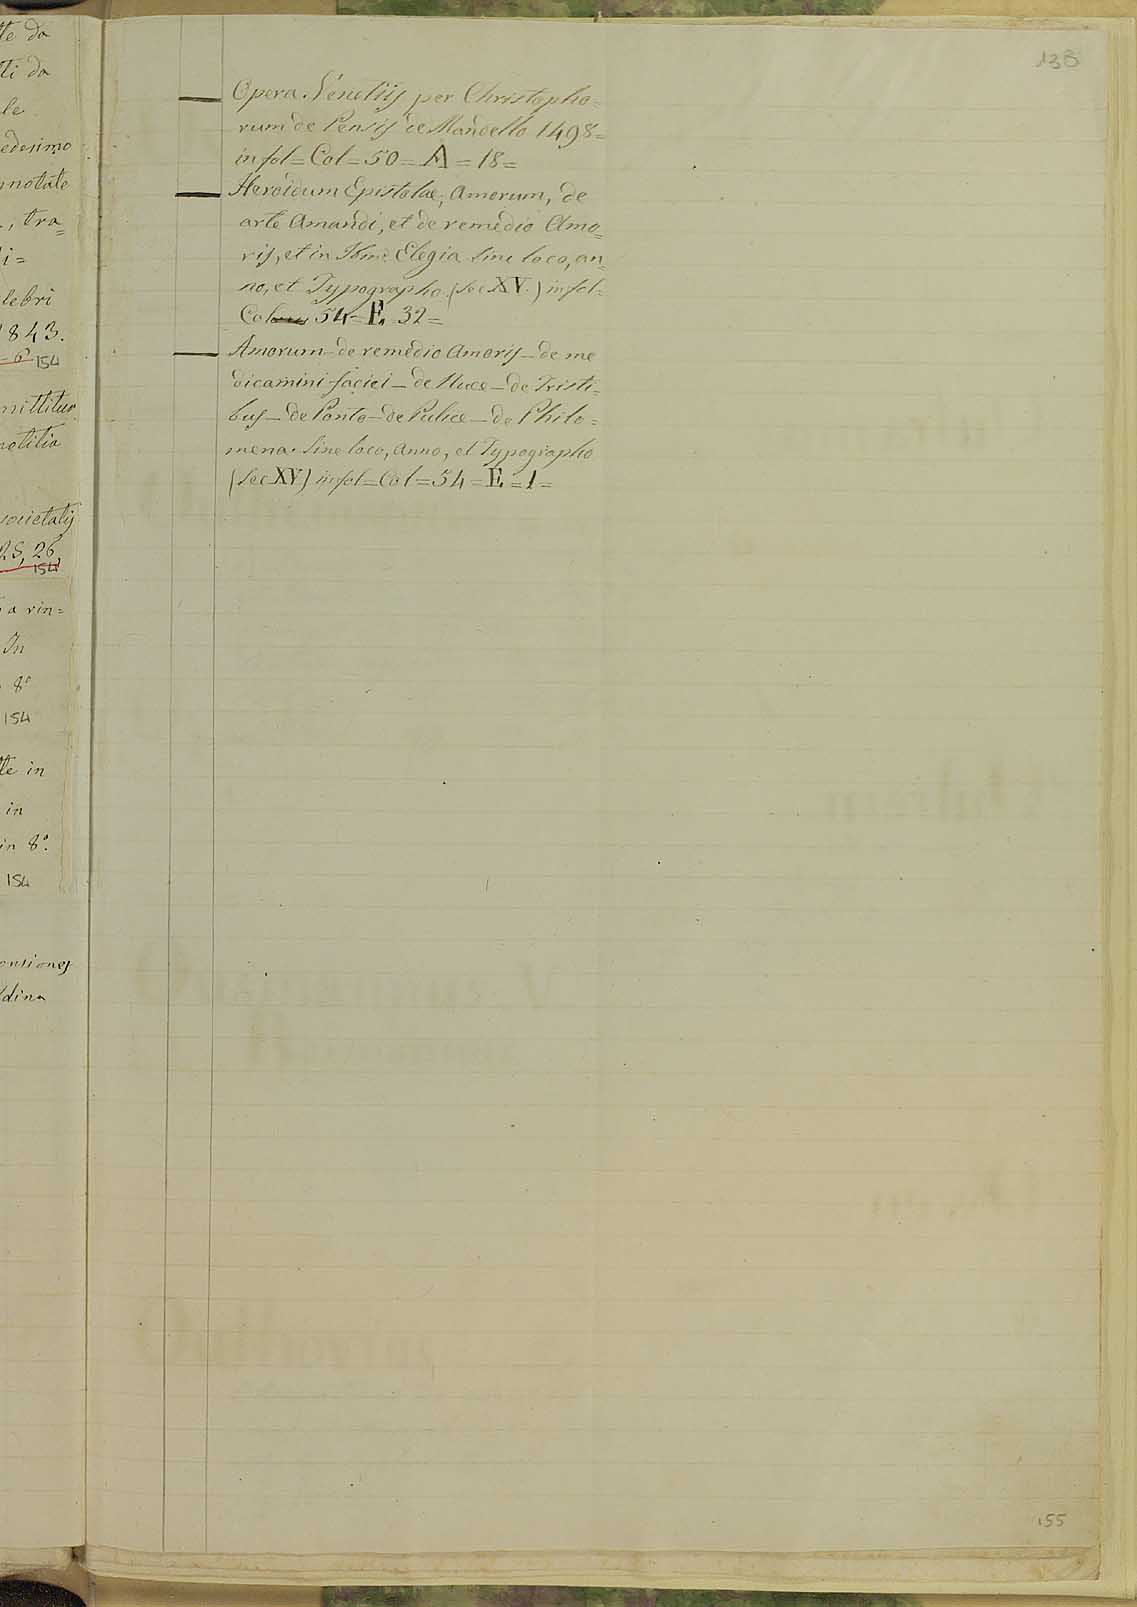 te da
ti da
le
edesimo
nnotate
, tra=
i=
lebri
1843.
6 154
mittitur
notitia
societatis
25, 26,
154
a rin=
In
8º
154
te in
in
in 8º.
154
onsiones
ldina
138
Opera. Venetiis per Christopho=
rum de Pensis de Mandello 1498=
in fol= Col= 50= A = 18=
Heroidum Epistolae, Amorum, de
arte Amandi, et de remedio Amo=
ris, et in Ibin. Elegia sine loco, an=
no, et Typographo. (Sec XV.) in fol=
Col 54= E 32=
Amorum - de remedio Amoris - de me
dicamini faciei - de Nuce - de Tristi=
bus - de Ponto - de Pulice - de Philo=
mena. Sine loco, anno, et Typographo
(Sec XV) in fol= Col= 54= E = 1=
155